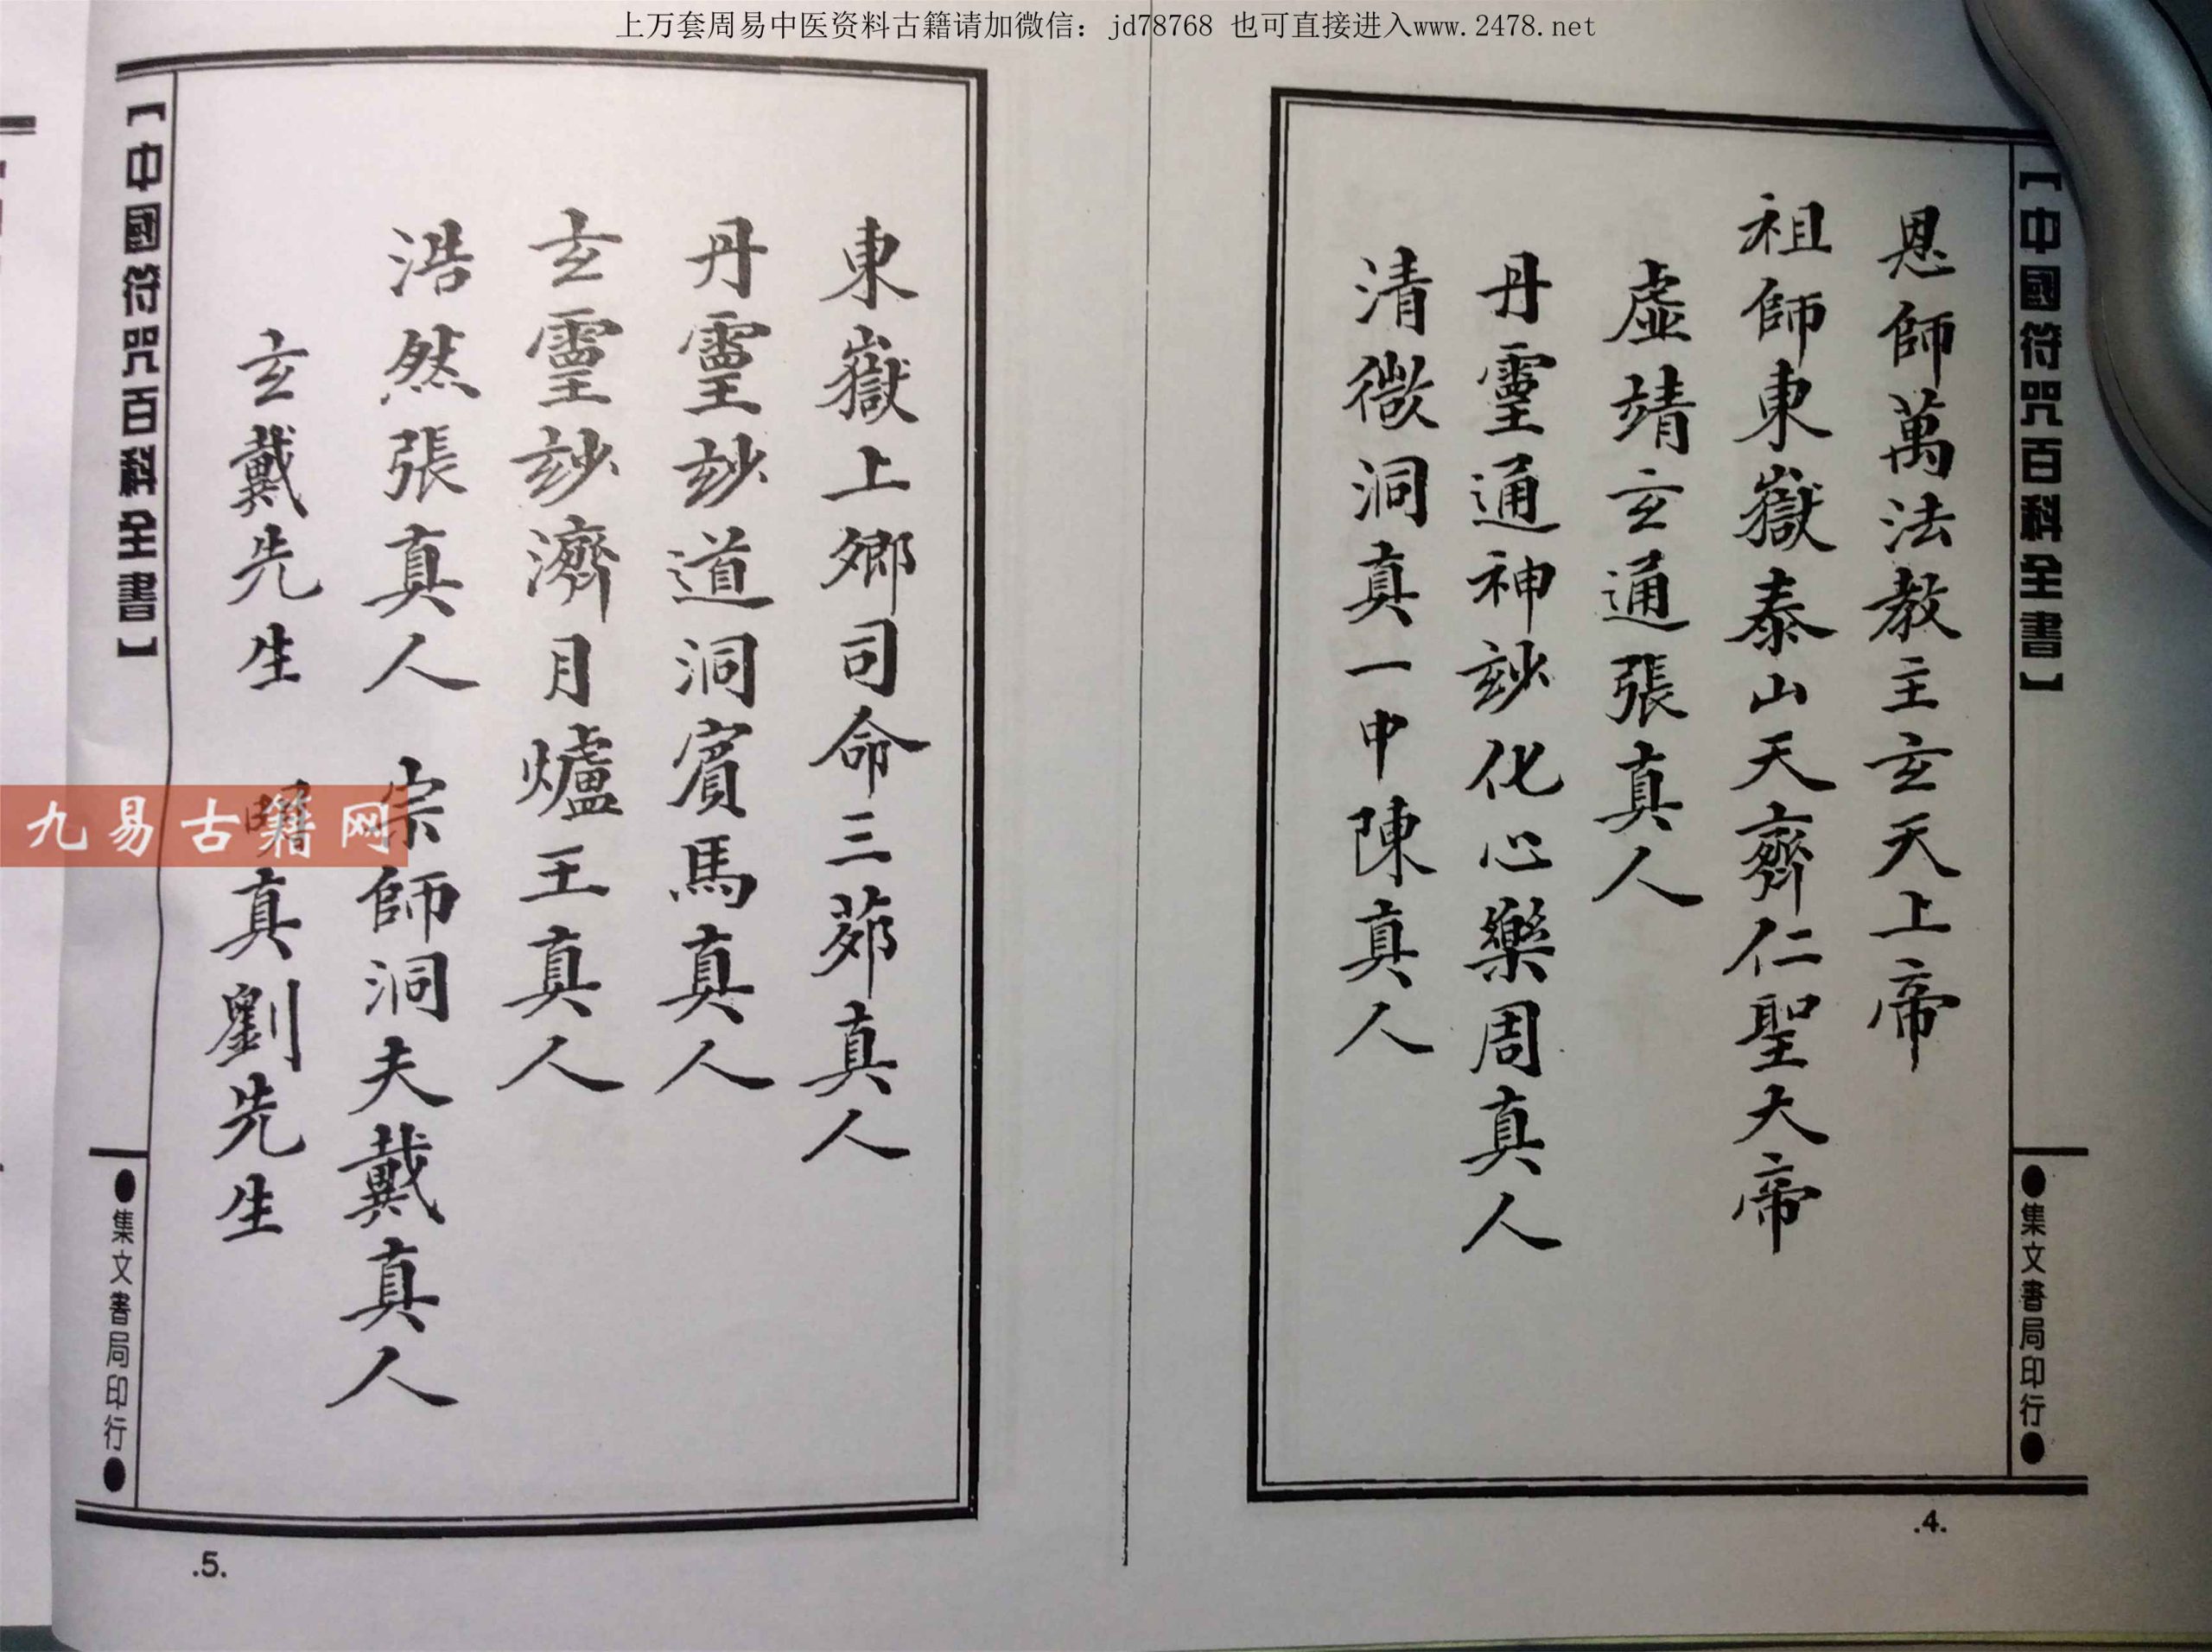 上万套周易中医资料古籍请加微信：jd78768 也可直接进入www.2478.net
【中國符咒百科全書】
●集文書局印行●
恩師萬法教主玄天上帝
祖師東嶽泰山天齊仁聖大帝
虛靖玄通張真人
丹靈通神妙化心樂周真人
清微洞真一中陳真人
.4.
東嶽上卿司命三茆真人
丹靈玅道洞賓馬真人
玄靈玅濟月爐王真人
浩然張真人 宗師洞夫戴真人
玄戴先生 真劉先生
【中國符咒百科全書】
●集文書局印行●
.5.
九易古籍网